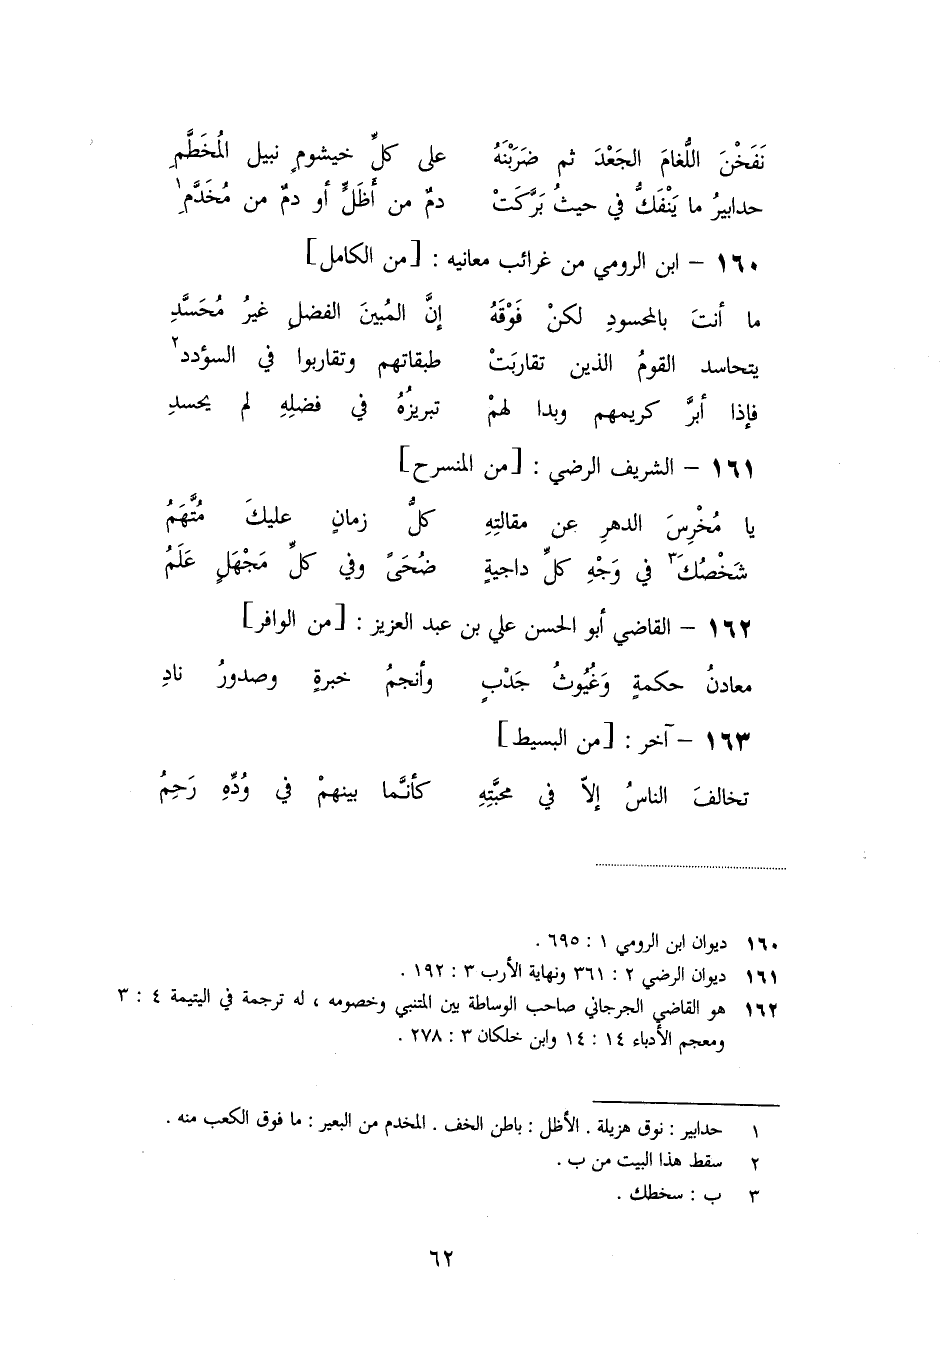 نَفَخْنَ اللُّغامَ الجَعْدَ ثم ضَرَبْنَهُ على كلِّ خيشومٍ نبيل المُخَطَّمِ
حدابيرُ ما يَنْفَكُّ في حيثُ بَرَّكَتْ دمٌ من أَظَلٍّ أو دمٌ من مُخَدَّمِ¹
١٦٠ – ابن الرومي من غرائب معانيه : [من الكامل]
ما أنتَ بالمحسودِ لكنْ فَوْقَهُ إنَّ المُبينَ الفضلِ غيرُ مُحَسَّدِ
يتحاسد القومُ الذين تقاربَتْ طبقاتهم وتقاربوا في السؤدد²
فإذا أبرَّ كريمهم وبدا لهمْ تبريزُهُ في فضلِهِ لم يحسدِ
١٦١ – الشريف الرضي : [من المنسرح]
يا مُخْرِسَ الدهرِ عن مقالتِهِ كلُّ زمانٍ عليكَ مُتَّهَمُ
شَخْصُكَ³ في وَجْهِ كلِّ داجيةٍ ضُحَىً وفي كلِّ مَجْهَلٍ عَلَمُ
١٦٢ – القاضي أبو الحسن علي بن عبد العزيز : [من الوافر]
معادنُ حكمةٍ وَغُيُوثُ جَدْبٍ وأنجمُ خبرةٍ وصدورُ نادِ
١٦٣ – آخر : [من البسيط]
تخالفَ الناسُ إلاّ في محبَّتِهِ كأنَّما بينهمْ في وُدِّهِ رَحِمُ
١٦٠ ديوان ابن الرومي ١ : ٦٩٥ .
١٦١ ديوان الرضي ٢ : ٣٦١ ونهاية الأرب ٣ : ١٩٢ .
١٦٢ هو القاضي الجرجاني صاحب الوساطة بين المتنبي وخصومه ، له ترجمة في اليتيمة ٤ : ٣
ومعجم الأدباء ١٤ : ١٤ وابن خلكان ٣ : ٢٧٨ .
١ حدابير : نوق هزيلة . الأظل : باطن الخف . المخدم من البعير : ما فوق الكعب منه .
٢ سقط هذا البيت من ب .
٣ ب : سخطك .
٦٢